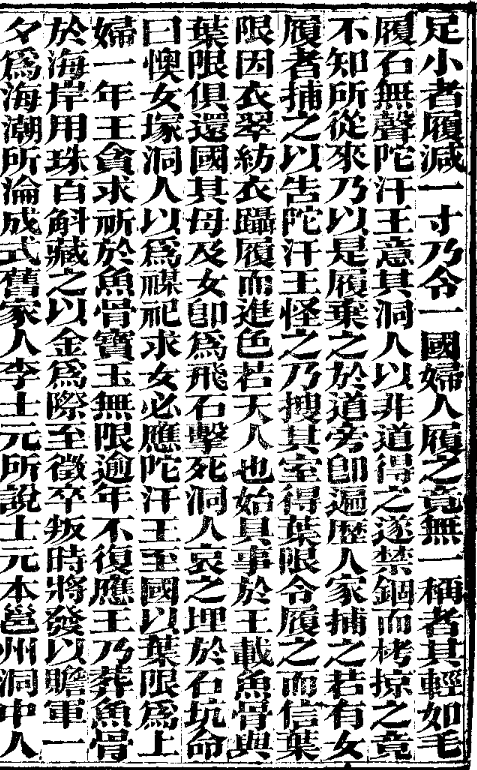 足小者履減一寸乃令一國婦人履之竟無一稱者其輕如毛
履石無聲陀汗王意其洞人以非道得之遂禁錮而栲掠之竟
不知所從來乃以是履棄之於道旁卽遍歷人家捕之若有女
履者捕之以告陀汗王怪之乃搜其室得葉限令履之而信葉
限因衣翠紡衣躡履而進色若天人也始具事於王載魚骨與
葉限俱還國其母及女卽爲飛石擊死洞人哀之埋於石坑命
曰懊女塚洞人以爲禖祀求女必應陀汗王至國以葉限爲上
婦一年王貪求祈於魚骨寶玉無限逾年不復應王乃葬魚骨
於海岸用珠百斛藏之以金爲際至徵卒叛時將發以贍軍一
夕爲海潮所淪成式舊家人李士元所說士元本邕州洞中人